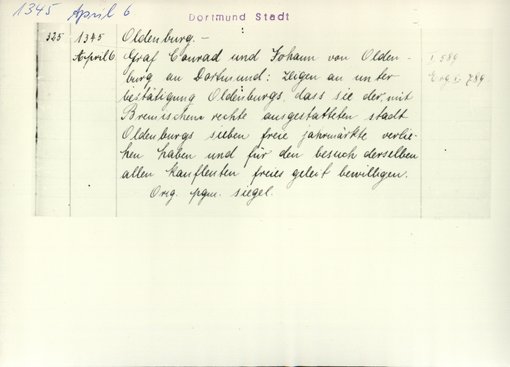 1345 April 6
Dortmund Stadt
325 1345 Oldenburg. –
April 6 Graf Conrad und Johann von Olden-
burg an Dortmund: zeigen an unter
bestätigung Oldenburgs, dass sie der mit
Bremischem rechte ausgestatteten stadt
Oldenburgs sieben freie jahrmärkte verlie-
hen haben und für den besuch derselben
allen kaufleuten freies geleit bewilligen.
Org. pgm. siegel.
I 589
789